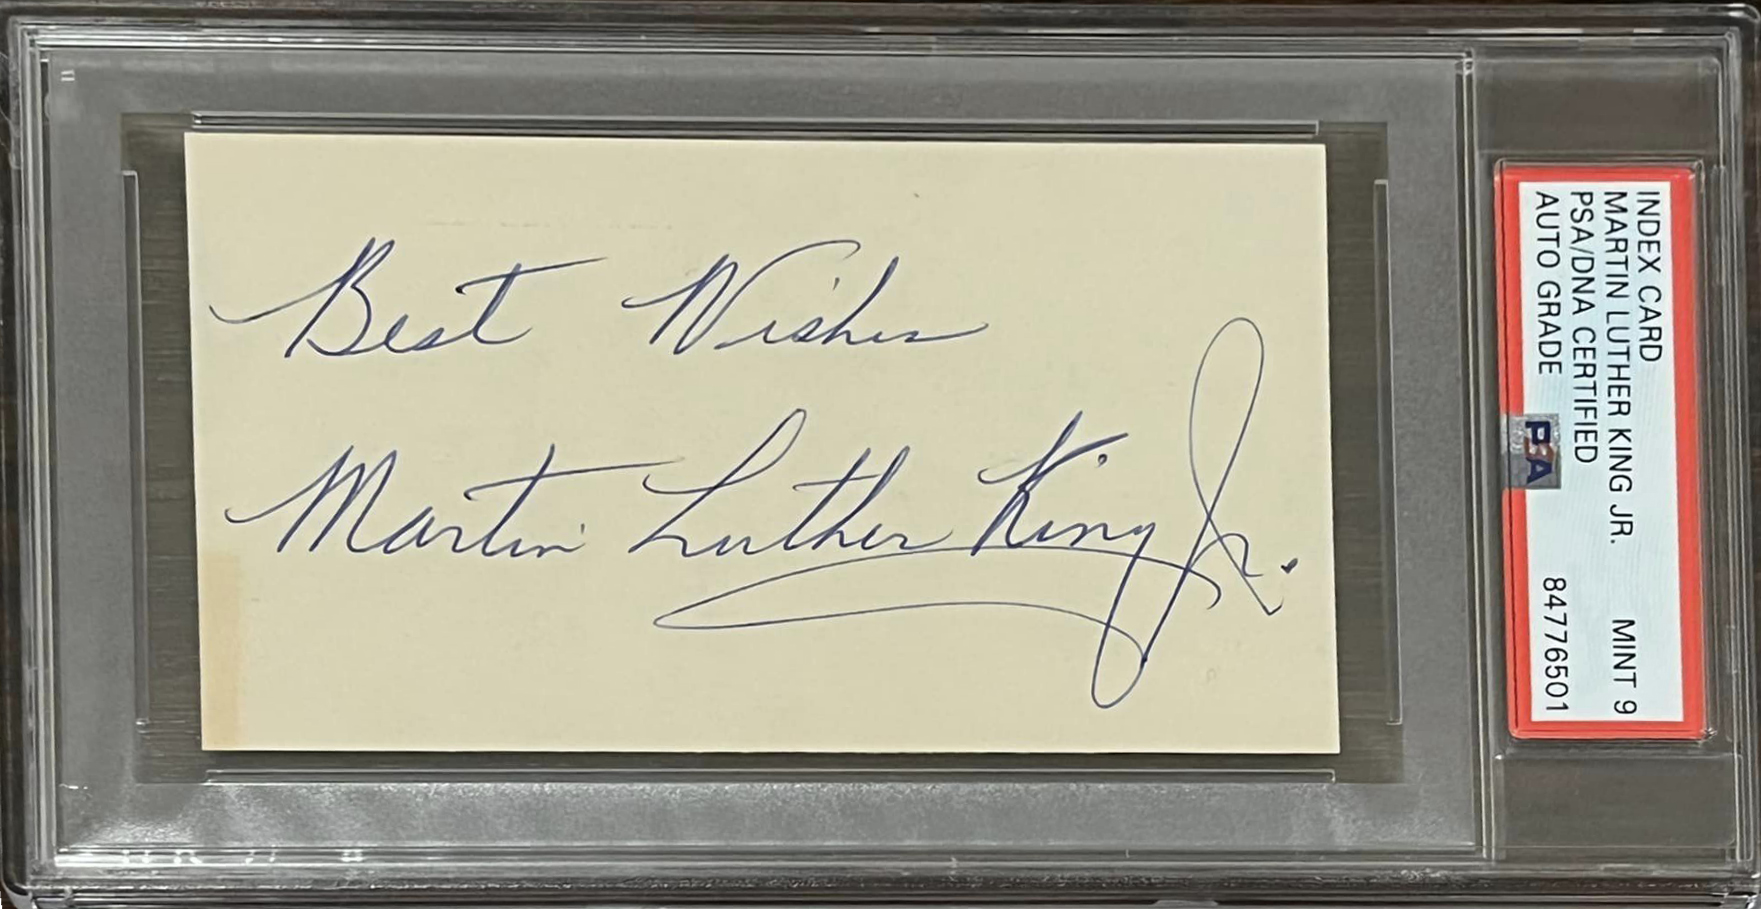 Best Wishes
Martin Luther King Jr.
INDEX CARD
MARTIN LUTHER KING JR. MINT 9
PSA/DNA CERTIFIED
AUTO GRADE 84776501
PSA